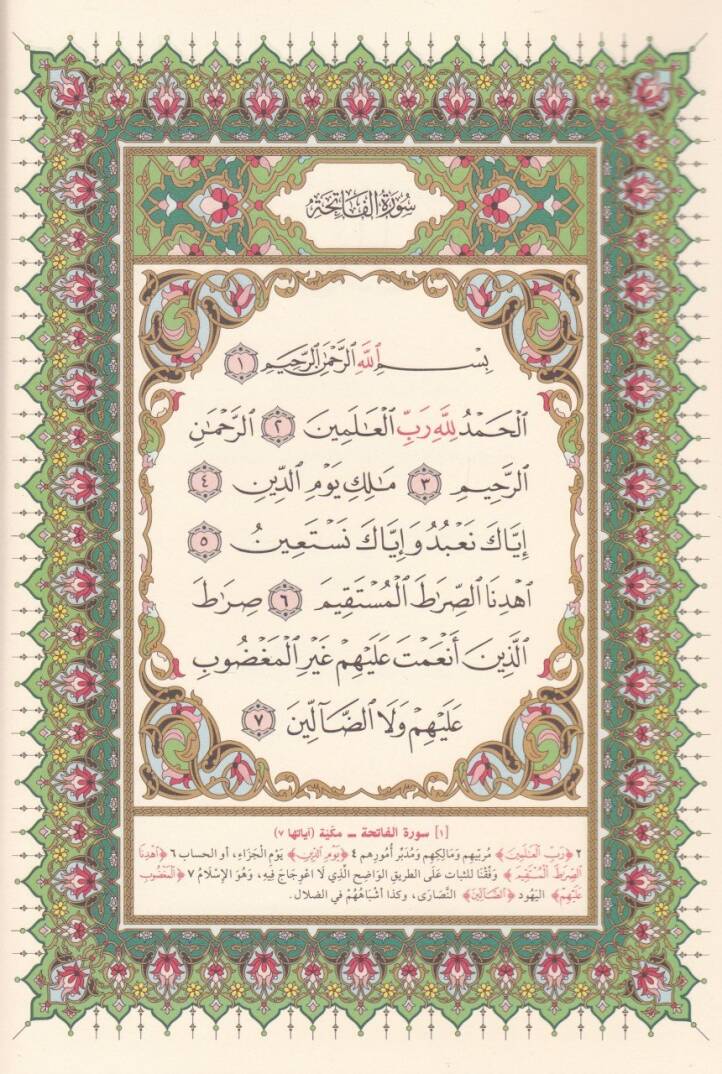 سُورَةُ الفَاتِحَةِ
بِسْمِ ٱللَّهِ ٱلرَّحْمَٰنِ ٱلرَّحِيمِ ١
ٱلْحَمْدُ لِلَّهِ رَبِّ ٱلْعَٰلَمِينَ ٢ ٱلرَّحْمَٰنِ
ٱلرَّحِيمِ ٣ مَٰلِكِ يَوْمِ ٱلدِّينِ ٤
إِيَّاكَ نَعْبُدُ وَإِيَّاكَ نَسْتَعِينُ ٥
ٱهْدِنَا ٱلصِّرَٰطَ ٱلْمُسْتَقِيمَ ٦ صِرَٰطَ
ٱلَّذِينَ أَنْعَمْتَ عَلَيْهِمْ غَيْرِ ٱلْمَغْضُوبِ
عَلَيْهِمْ وَلَا ٱلضَّآلِّينَ ٧
[١] سورة الفاتحة ــ مكية (آياتها ٧)
٢ ﴿رَبِّ ٱلْعَٰلَمِينَ﴾ مُرَبِّيهِم وَمَالِكِهِم وَمُدَبِّر أُمُورِهم ٤ ﴿يَوْمِ ٱلدِّينِ﴾ يَوْمِ الْجَزَاءِ، أو الحساب ٦ ﴿ٱهْدِنَا
ٱلصِّرَٰطَ ٱلْمُسْتَقِيمَ﴾ وَفِّقْنَا للثبات عَلَى الطريقِ الوَاضِحِ الَّذِي لَا اعْوِجَاجَ فِيهِ، وَهُوَ الإِسْلَامُ ٧ ﴿ٱلْمَغْضُوبِ
عَلَيْهِمْ﴾ اليَهُود ﴿ٱلضَّآلِّينَ﴾ النَّصَارَى، وكذا أَشْبَاهُهُمْ في الضلال.